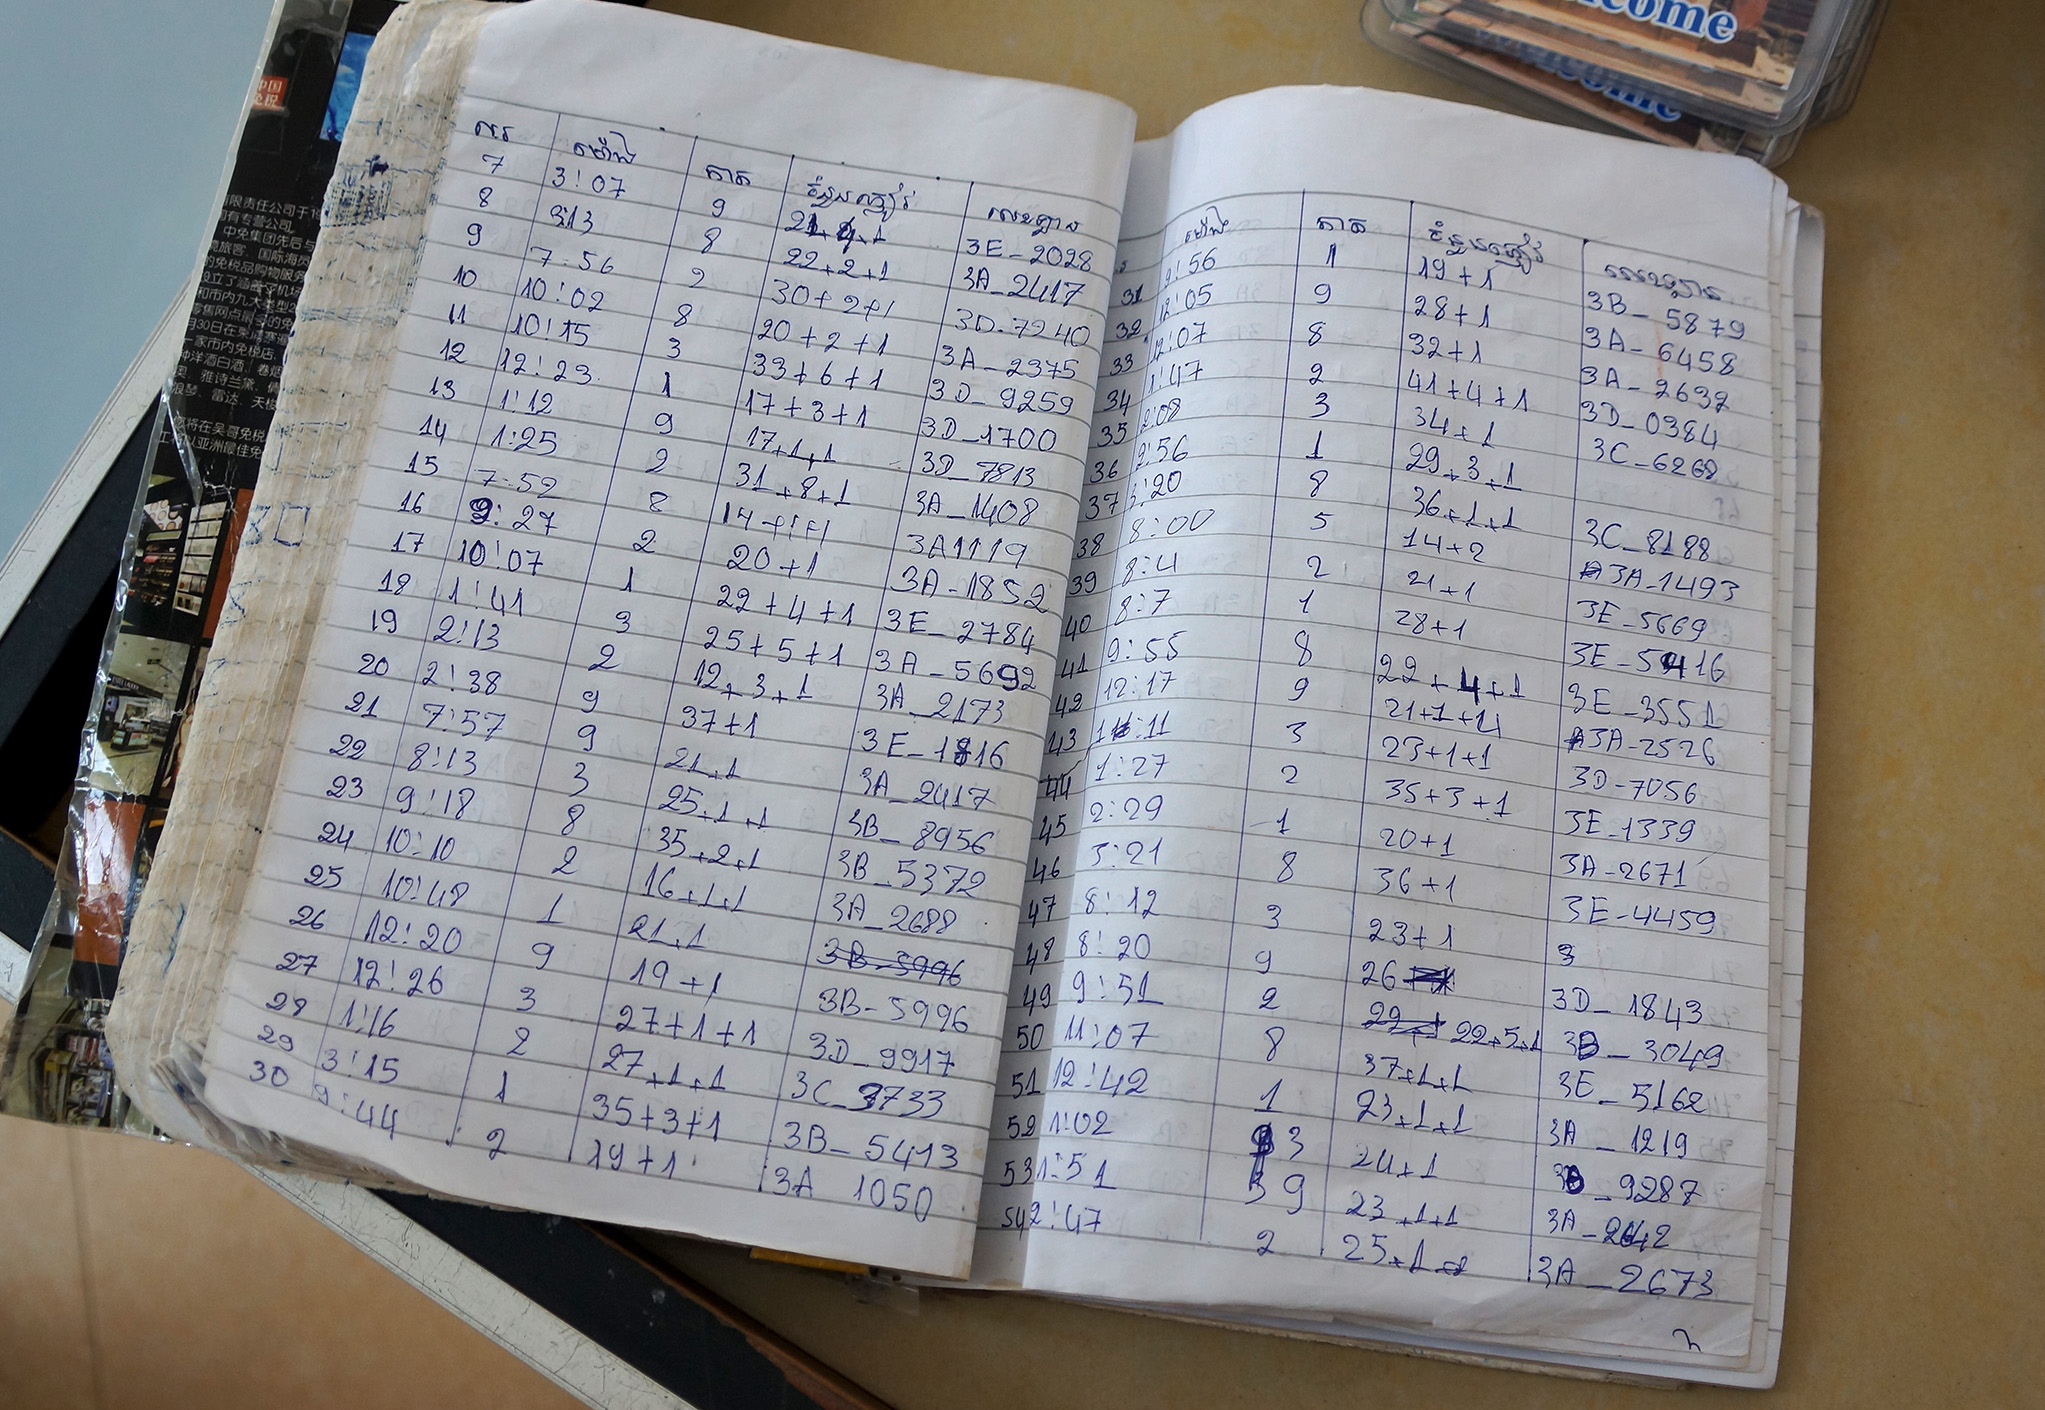 លរ ម៉ោង កាត ចំនួនភ្ញៀវ លេខឡាន
7 3:07 9 21+4+1 3E-2028
8 3:13 8 22+2+1 3A-2417
9 7:56 2 30+2+1 3D-7240
10 10:02 8 20+2+1 3A-2375
11 10:15 3 33+6+1 3D-9259
12 12:23 1 17+3+1 3D-1700
13 1:12 9 17+1+1 3D-7813
14 1:25 2 31+8+1 3A-1408
15 7:52 8 14+1+1 3A1119
16 9:27 2 20+1 3A-1852
17 10:07 1 22+4+1 3E-2784
18 1:41 3 25+5+1 3A-5692
19 2:13 2 12+3+1 3A-2173
20 2:38 9 37+1 3E-1816
21 7:57 9 21+1 3A-2417
22 8:13 3 25+1+1 3B-8956
23 9:18 8 35+2+1 3B-5372
24 10:10 2 16+1+1 3A-2688
25 10:48 1 21+1 3B-5996
26 12:20 9 19+1 3B-5996
27 12:26 3 27+1+1 3D-9917
28 1:16 2 27+1+1 3C-3733
29 3:15 1 35+3+1 3B-5413
30 9:44 2 19+1 3A 1050
ម៉ោង កាត ចំនួនភ្ញៀវ លេខឡាន
31 9:56 1 19+1 3B-5879
32 12:05 9 28+1 3A-6458
33 12:07 8 32+1 3A-2632
34 1:47 2 41+4+1 3D-0384
35 2:08 3 34+1 3C-6268
36 2:56 1 29+3+1
37 3:20 8 36+1+1 3C-8188
38 8:00 5 14+2 3A-1493
39 8:4 2 21+1 3E-5669
40 8:7 1 28+1 3E-5416
41 9:55 8 22+4+1 3E-3551
42 12:17 9 21+1+1 3A-2526
43 1:11 3 23+1+1 3D-7056
44 1:27 2 35+3+1 3E-1339
45 2:29 1 20+1 3A-2671
46 3:21 8 36+1 3E-4459
47 8:12 3 23+1 3
48 8:20 9 26 3D-1843
49 9:51 2 22+5+1 3B-3049
50 11:07 8 37+1+1 3E-5162
51 12:42 1 23+1+1 3A-1219
52 1:02 3 24+1 3B-9287
53 1:51 9 23+1+1 3A-2642
54 2:47 2 25+1+1 3A-2673
welcome
welcome
中国
免税